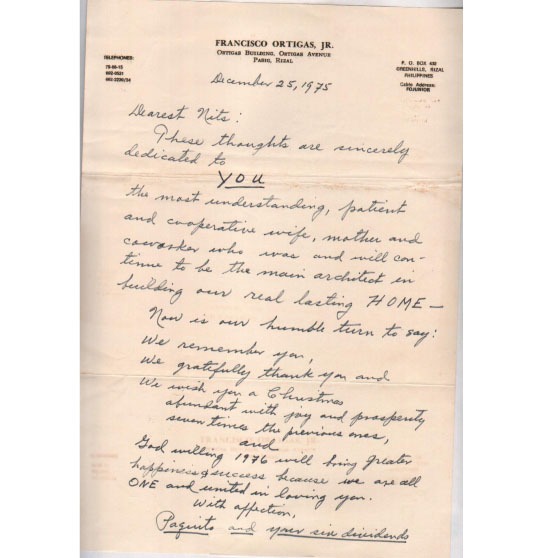 FRANCISCO ORTIGAS, JR.
ORTIGAS BUILDING, ORTIGAS AVENUE
PASIG, RIZAL
TELEPHONES:
P. O. BOX 
GREENHILLS, RIZAL
PHILIPPINES
Cable Address:
FOJUNIOR
December 25, 1975
Dearest Nits:
These thoughts are sincerely
dedicated to
YOU
the most understanding, patient
and cooperative wife, mother and
coworker who was and will con-
tinue to be the main architect in
building our real lasting HOME —
Now is our humble turn to say:
We remember you,
We gratefully thank you and
We wish you a Christmas
abundant with joy and prosperity
seven times the previous ones,
and
God willing 1976 will bring greater
happiness & success because we are all
ONE and united in loving you.
With affection,
Paquito and your six dividends